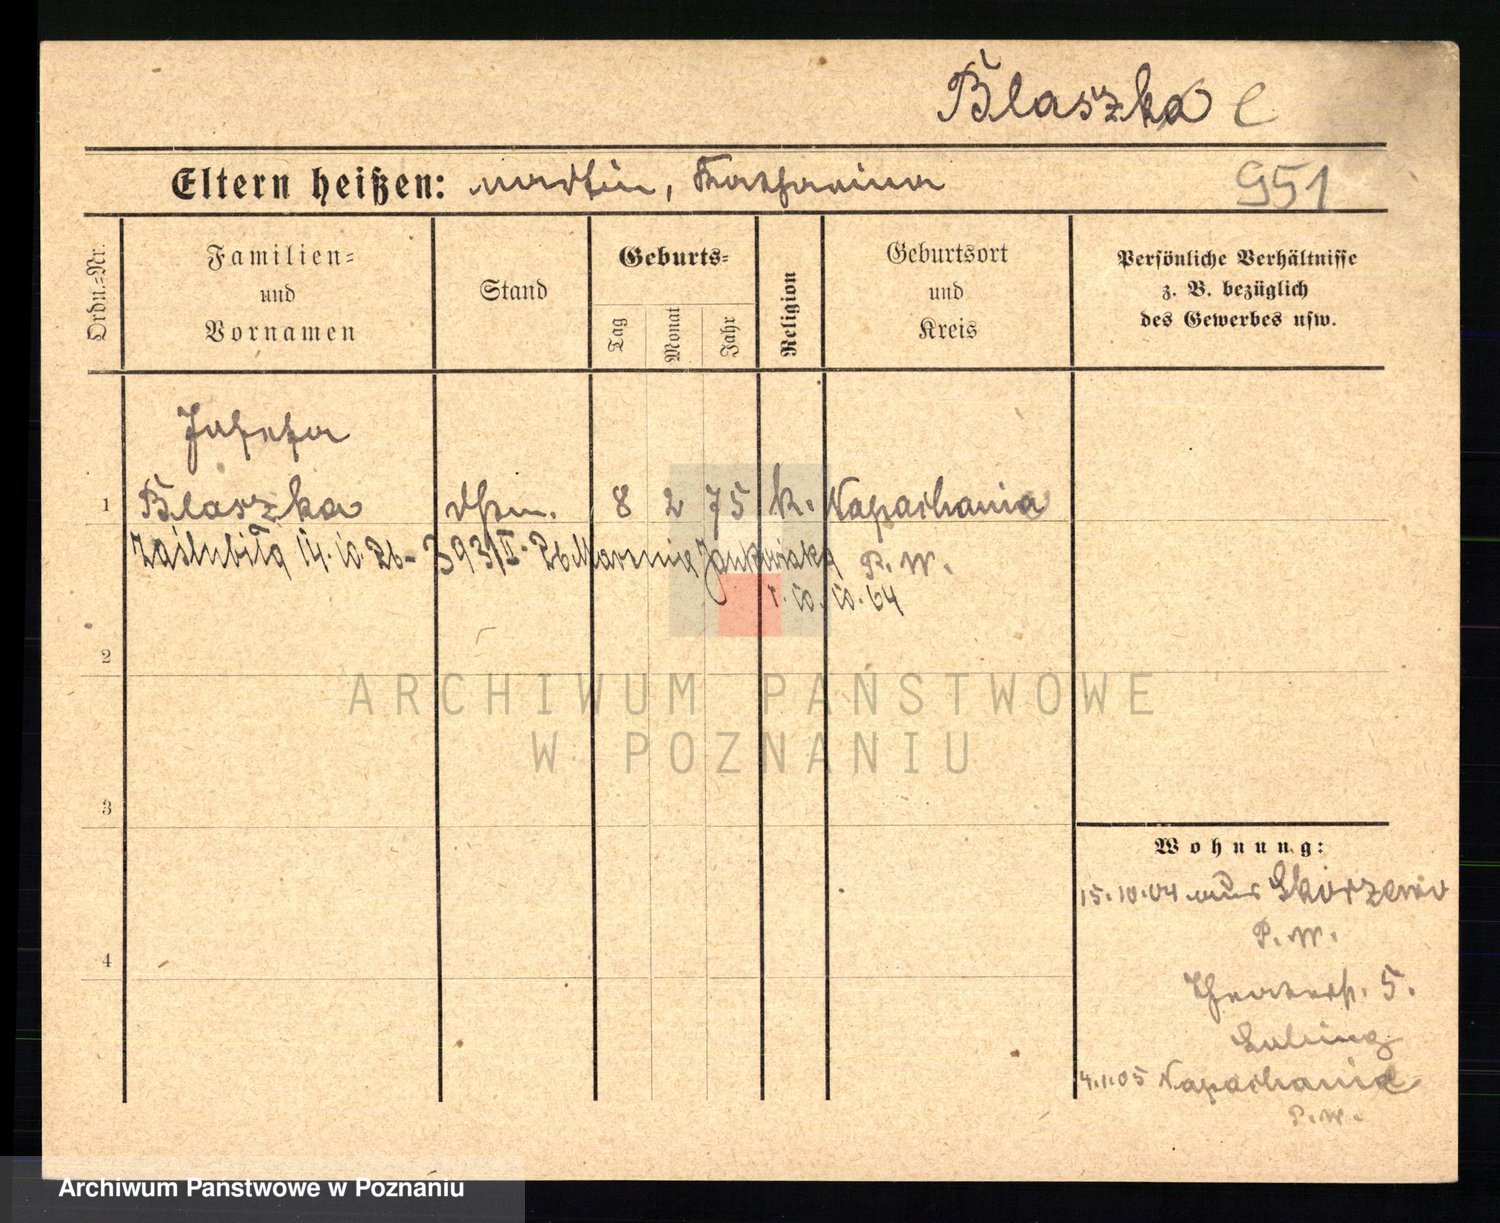 Blaszka C
Eltern heißen: Martin, Katharina
951
Ordn.=Nr.
Familien=
und
Vornamen
Stand
Geburts=
Tag
Monat
Jahr
Religion
Geburtsort
und
Kreis
Persönliche Verhältnisse
z. B. bezüglich
des Gewerbes usw.
Josefa
1 Blaszka 8 2 75 k. Napachanie
zaślubiła 14.10.26 - 393/II-26 Jankowiaka
P. W.
64
2
ARCHIWUM PAŃSTWOWE
W POZNANIU
3
4
Wohnung:
15.10.04 aus Skorzewo
P. W.
Theaterstr. 5.
4.1.05 Napachanie
P. W.
Archiwum Państwowe w Poznaniu